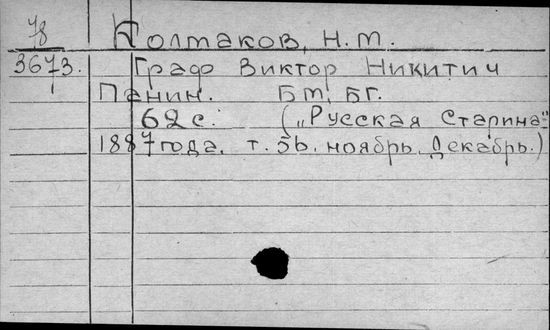 7/8 Колмаков, Н. М.
3673. Граф Виктор Никитич
Панин. Б м, Б г.
62 с. („Русская Старина"
1887 года. т. 56. ноябрь. Декабрь.)